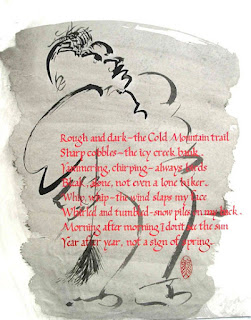 Rough and dark-the Cold Mountain trail
Sharp cobbles-the icy creek bank
Yammering, chirping-always birds
Bleak, alone, not even a lone hiker.
Whip, whip-the wind slaps my face
Whirled and tumbled-snow piles on my back.
Morning after morning I don't see the sun
Year after year, not a sign of spring.